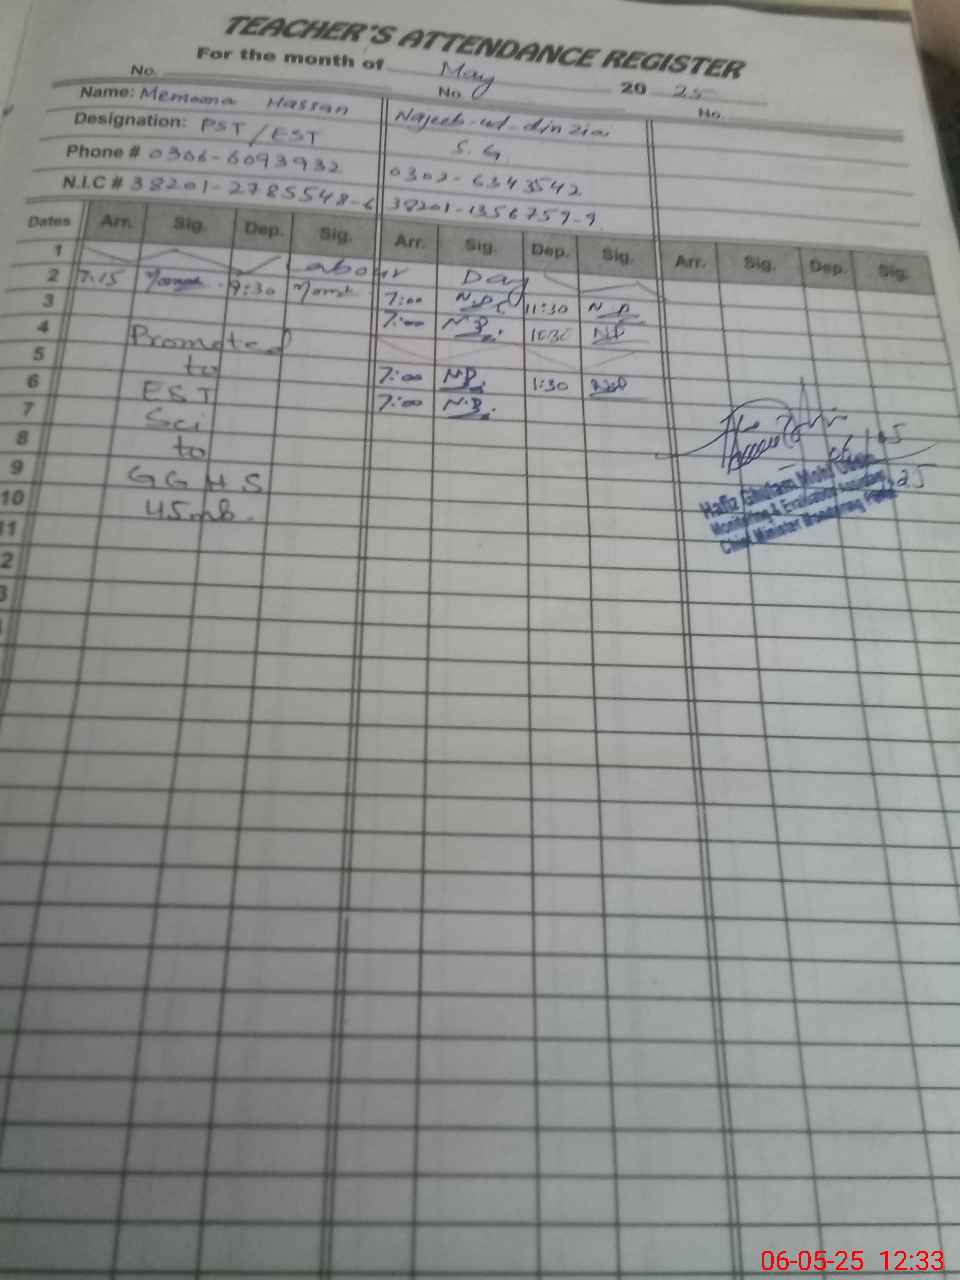 TEACHER'S ATTENDANCE REGISTER
For the month of May 20 25
No. No. No.
Name: Memoona Hassan Najeeb-ud-din Ziai
Designation: PST / EST S.G
Phone # 0306-6093932 0302-6343542
N.I.C # 38201-2785548-6 38201-1356759-9
Dates Arr. Sig. Dep. Sig. Arr. Sig. Dep. Sig. Arr. Sig. Dep. Sig.
1 Labour Day
2 7:15 9:30 7:00 11:30
3 7:00
4
5 7:00 1:30
6 7:00
7
8
9
10
11
2
3
Promoted
to
EST
Sci
to
GGHS
45 mb.
Hafiz Ghulam
Monitoring & Evaluation Assistant
Chief Minister Monitoring Force
06-05-25 12:33